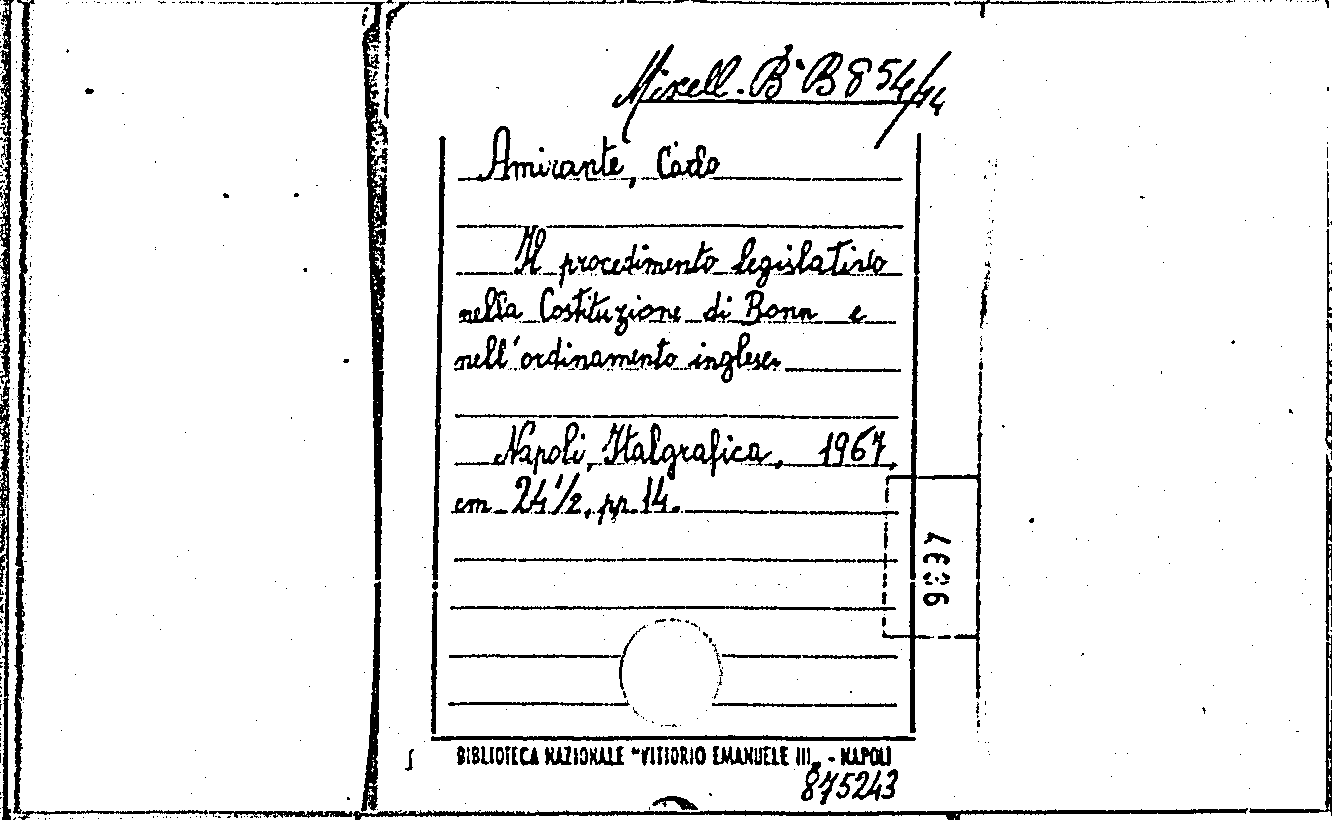 Miscell. B. B 854/14
Amirante, Carlo
Il procedimento legislativo
nella Costituzione di Bonn e
nell'ordinamento inglese.
Napoli, Italgrafica, 1967,
cm 24 1/2, pp. 14.
BIBLIOTECA NAZIONALE "VITTORIO EMANUELE III„ - NAPOLI
875243